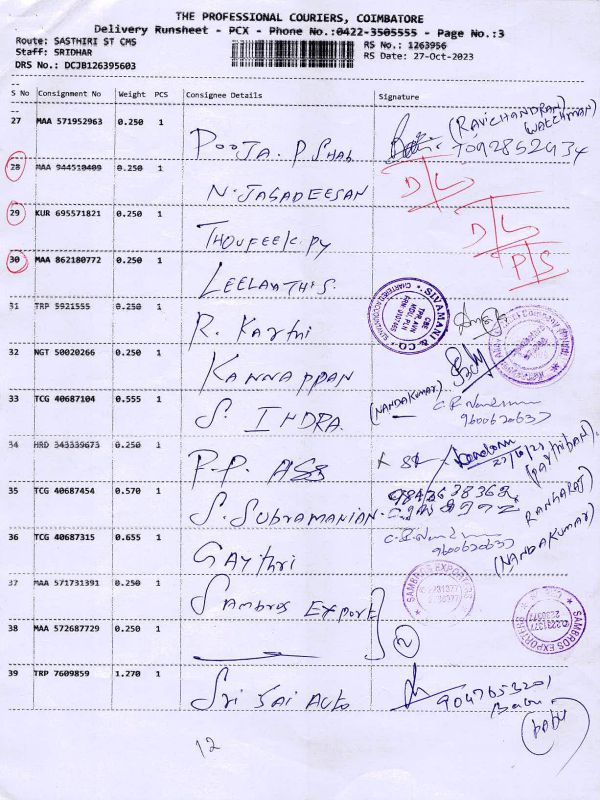 THE PROFESSIONAL COURIERS, COIMBATORE
Delivery Runsheet - PCX - Phone No.:0422-3505555 - Page No.:3
Route: SASTHIRI ST CMS
RS No.: 1263956
Staff: SRIDHAR
RS Date: 27-Oct-2023
DRS No.: DCJB126395603
S No Consignment No Weight PCS Consignee Details Signature
27 MAA 571952963 0.250 1 POOJA. P. Shah (RAVICHANDRAN) WATCHMAN)
28 MAA 944510409 0.250 1 N. JAGADEESAN D/L
29 KUR 695571821 0.250 1 THOUFEEK. PY D/L
30 MAA 862180772 0.250 1 LEELAVTHI S. P/S
31 TRP 5921555 0.250 1 R. Karthi SIVAMANI & CO CHARTERED ACCOUNTANTS
32 NGT 50020266 0.250 1 KANNAPPAN
33 TCG 40687104 0.555 1 S. INDRA. (NANDAKUMAR) 9600620637
34 HRD 343339673 0.250 1 P.P. 27/10/23 (PARTHIBAN).
35 TCG 40687454 0.570 1 S. SUBRAMANIAN. RANGARAJ)
36 TCG 40687315 0.655 1 GAYTHRI 9600620637 (NANDAKUMAR)
37 MAA 571731391 0.250 1 SAMBROS EXPORT SAMBROS EXPORTERS 2231377 2230377
38 MAA 572687729 0.250 1 2 SAMBROS EXPORTERS 2231377 2230377
39 TRP 7609859 1.270 1 Sri Sai Auto 9047653201
Babu
(babu)
12